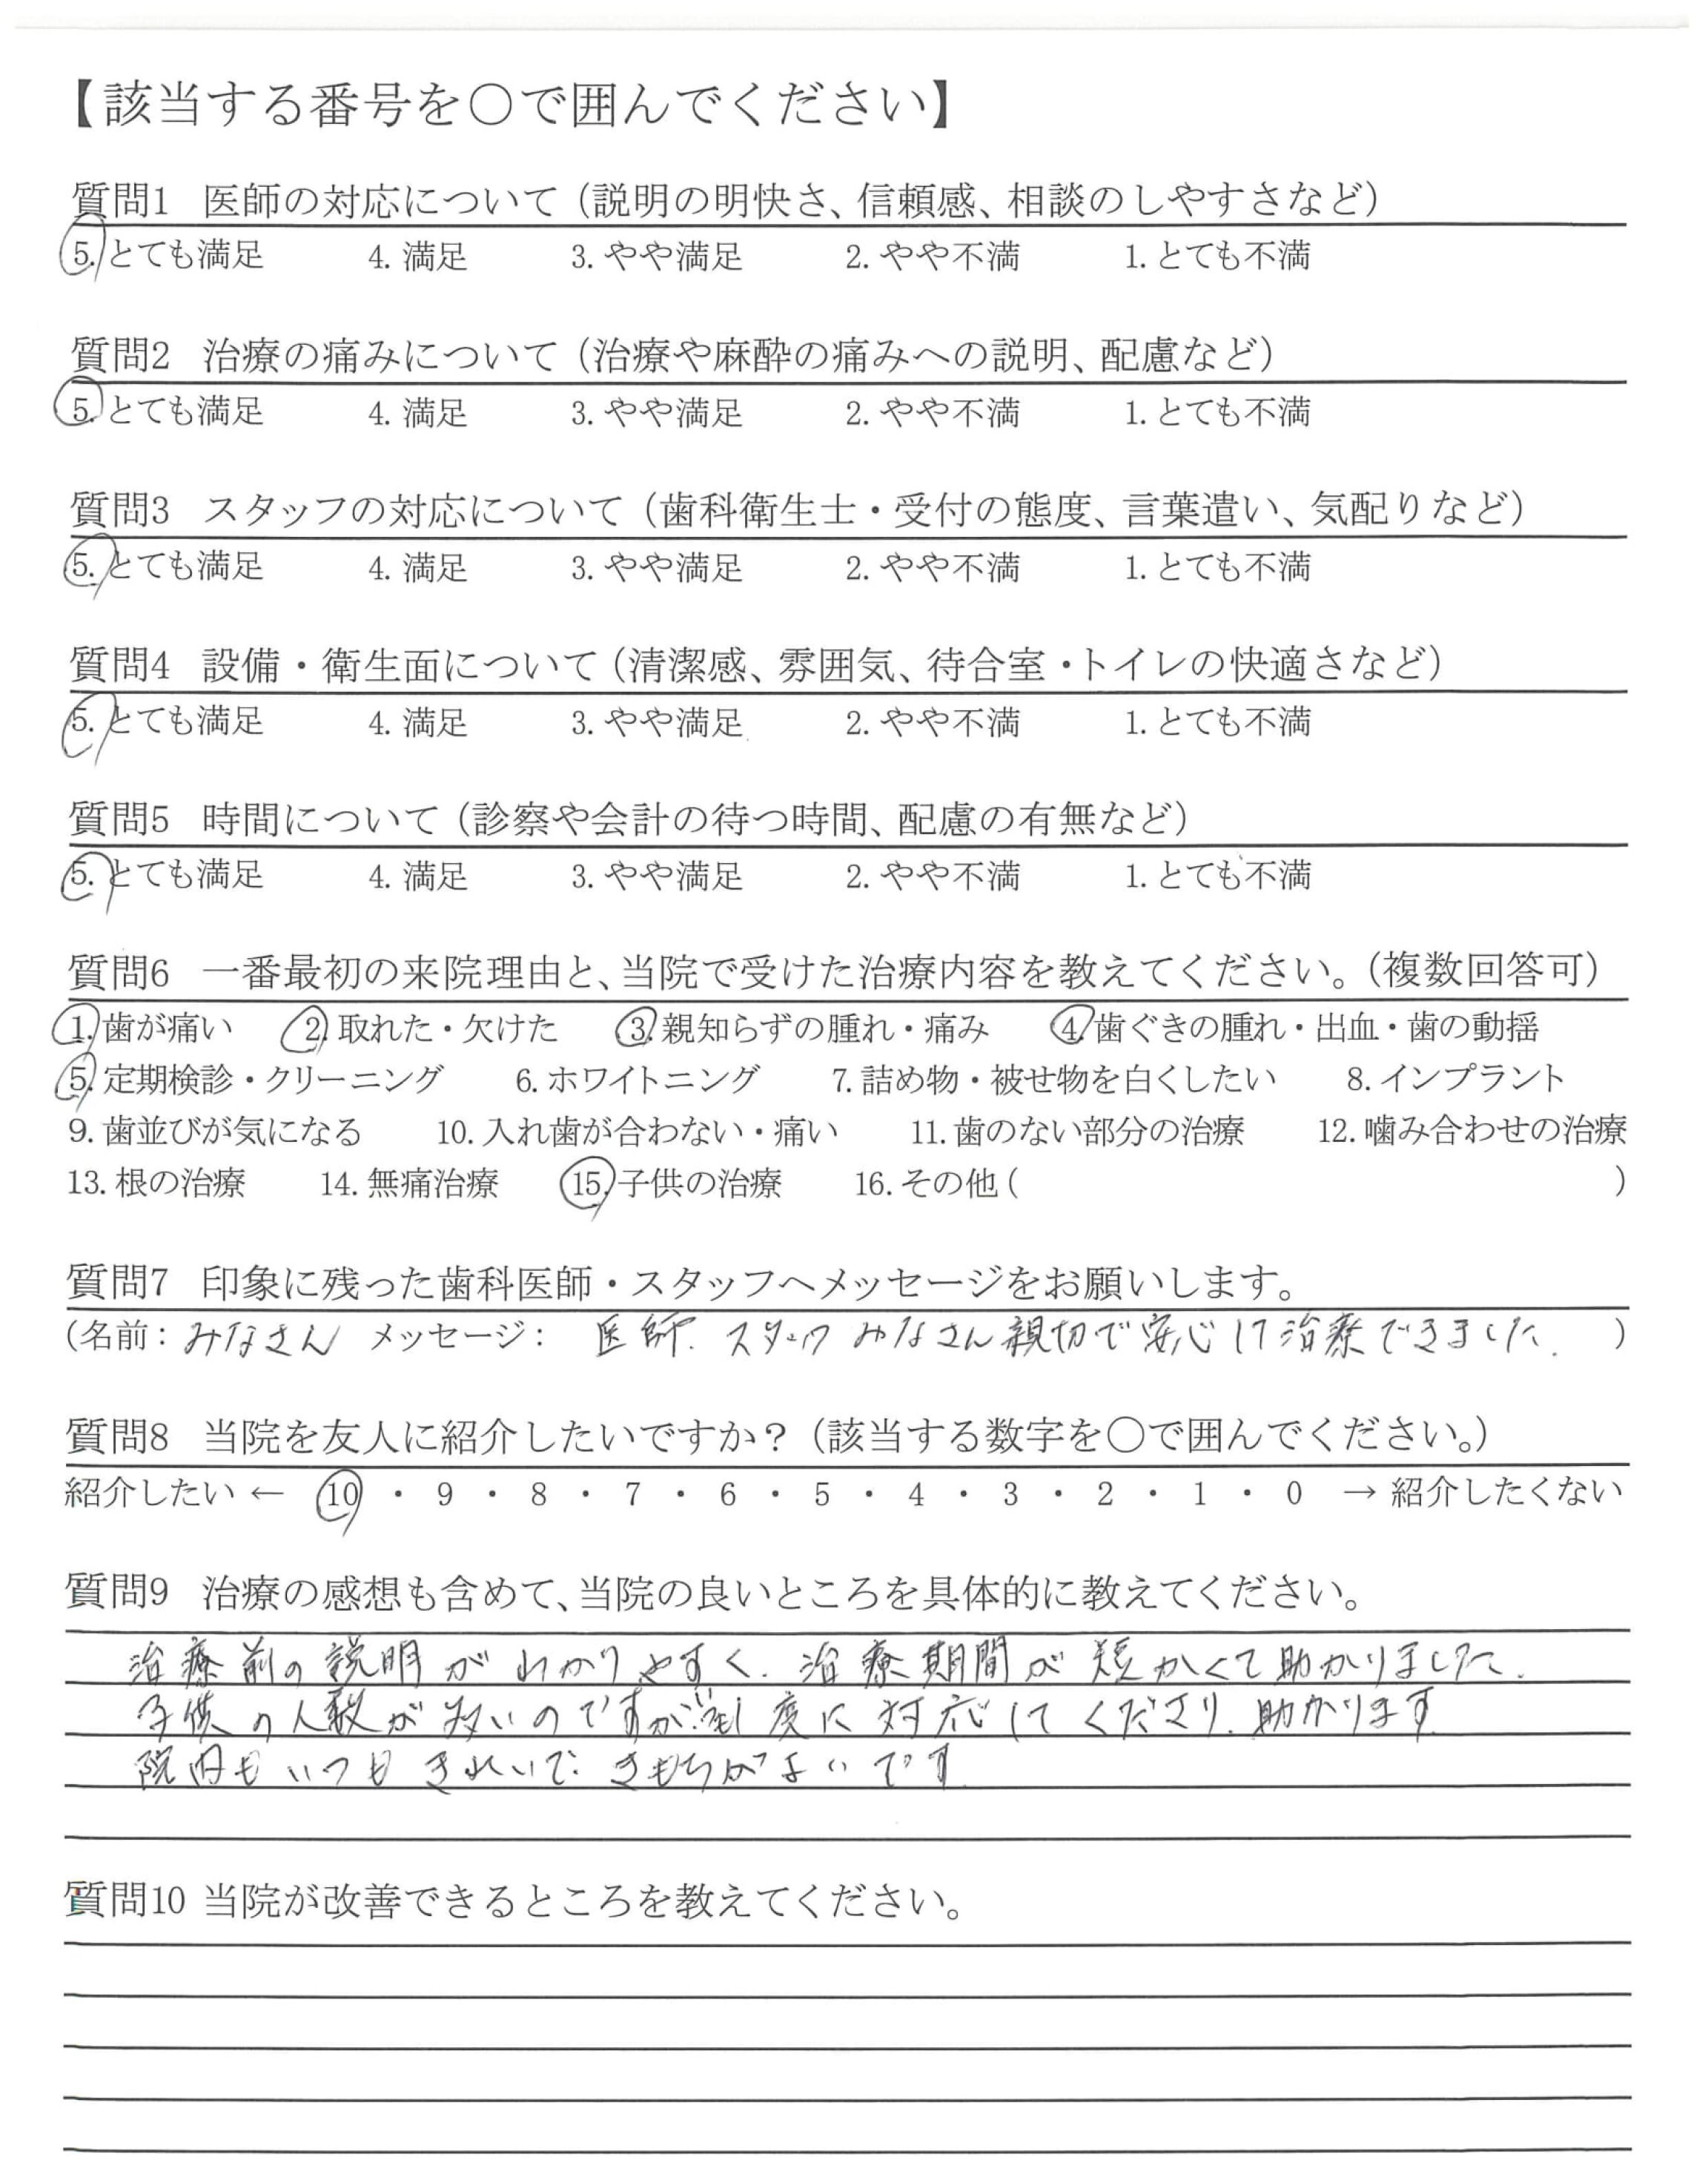 【該当する番号を○で囲んでください】
質問1 医師の対応について（説明の明快さ、信頼感、相談のしやすさなど）
5. とても満足 4. 満足 3. やや満足 2. やや不満 1. とても不満
質問2 治療の痛みについて（治療や麻酔の痛みへの説明、配慮など）
5. とても満足 4. 満足 3. やや満足 2. やや不満 1. とても不満
質問3 スタッフの対応について（歯科衛生士・受付の態度、言葉遣い、気配りなど）
5. とても満足 4. 満足 3. やや満足 2. やや不満 1. とても不満
質問4 設備・衛生面について（清潔感、雰囲気、待合室・トイレの快適さなど）
5. とても満足 4. 満足 3. やや満足 2. やや不満 1. とても不満
質問5 時間について（診察や会計の待つ時間、配慮の有無など）
5. とても満足 4. 満足 3. やや満足 2. やや不満 1. とても不満
質問6 一番最初の来院理由と、当院で受けた治療内容を教えてください。（複数回答可）
1. 歯が痛い 2. 取れた・欠けた 3. 親知らずの腫れ・痛み 4. 歯ぐきの腫れ・出血・歯の動揺
5. 定期検診・クリーニング 6. ホワイトニング 7. 詰め物・被せ物を白くしたい 8. インプラント
9. 歯並びが気になる 10. 入れ歯が合わない・痛い 11. 歯のない部分の治療 12. 噛み合わせの治療
13. 根の治療 14. 無痛治療 15. 子供の治療 16. その他（ ）
質問7 印象に残った歯科医師・スタッフへメッセージをお願いします。
（名前：みなさん メッセージ： 医師. スタッフ みなさん親切で安心して治療できました. ）
質問8 当院を友人に紹介したいですか？（該当する数字を○で囲んでください。）
紹介したい ← 10 ・ 9 ・ 8 ・ 7 ・ 6 ・ 5 ・ 4 ・ 3 ・ 2 ・ 1 ・ 0 → 紹介したくない
質問9 治療の感想も含めて、当院の良いところを具体的に教えてください。
治療前の説明がわかりやすく. 治療期間が短かくて助かりました.
子供の人数が多いのですが. 度に対応してくださり. 助かります
院内もいつもきれいで きもちがよいです
質問10 当院が改善できるところを教えてください。